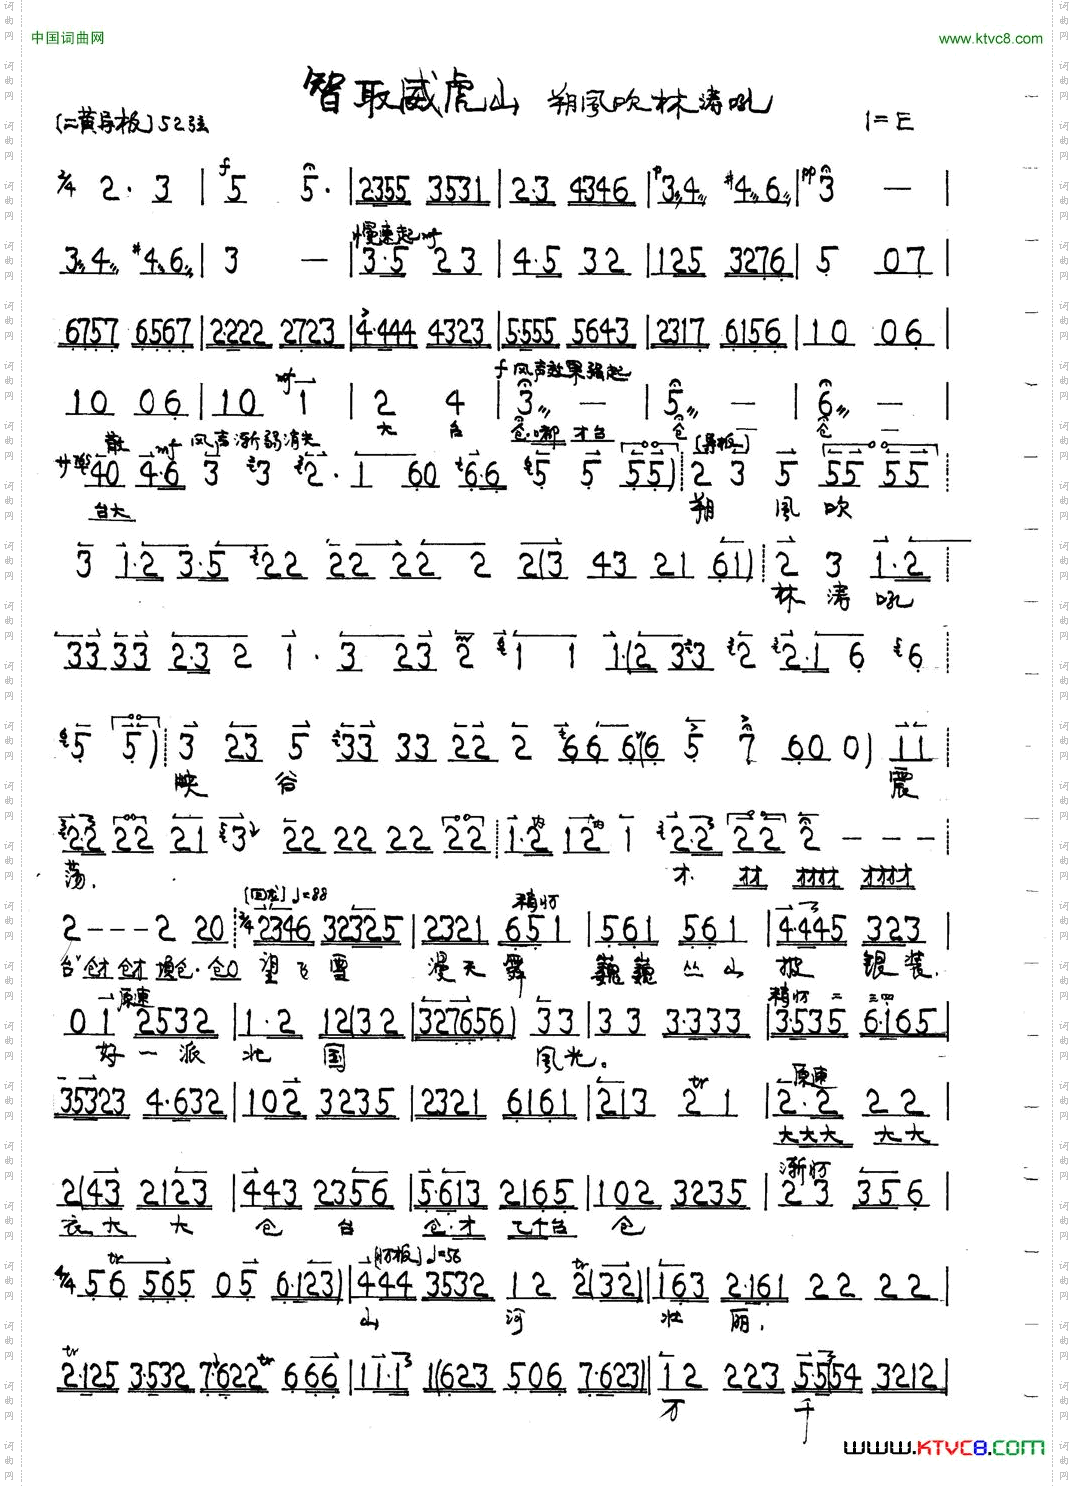 中国词曲网
www.ktvc8.com
智取威虎山 朔風吹林涛吼
(二黄导板) 52弦
1=E
2/4 2· 3 | f 5 5· | 2355 3531 | 2·3 4346 | p 3 4 #4 6 | pp 3 — |
3 4 #4 6 | 3 — | 慢速起 mf 3·5 23 | 4·5 32 | 125 3276 | 5 07 |
6757 6567 | 2·222 2723 | 4·444 4323 | 5·555 5643 | 2317 6156 | 10 06 |
10 06 | 10 mf 1 | 2 4 | f 风声效果强起 3 — | 5 — | 6 — |
大 台 仓·嘟 才台 仓 仓
散 mf 风声渐弱消失 (导板)
40 4·6 3 3 2· 1 60 6·6 5 5 55) 2 3 5 55 55
台大 朔 風 吹
3 1·2 3·5 22 22 22 2 2(3 43 21 61) 2 3 1·2
林 涛 吼
33 33 2·3 2 1· 3 23 2 1 1 1·(2 33 2 2·1 6 6
5 5) 3 23 5 33 33 22 2 66 6(6 5 7 60 0) 11
映 谷 震
2·2 22 21 3 22 22 22 22 1·2 12 1 2·2 22 2 — — —
荡.
2 - - - 2 20 (回龙) ♩=88 2/4 2346 32325 | 2321 稍快 651 | 561 561 | 4·445 323 |
望 飞 雪 漫 天 舞 巍 巍 丛 山 披 银 装.
0 1 原速 2532 | 1·2 12(32 | 327656) 33 | 33 3·333 | 稍快 3535 6·165 |
好 一 派 北 国 風 光。
35323 4·632 | 102 3235 | 2321 6161 | 213 tr 2 1 | 原速 2·2 22 |
大大大 大大
2(43 2123 | 443 2356 | 5·613 2165 | 102 3235 | 渐快 23 356 |
衣大 大 仓 台 仓·才 乙才台 仓
4/4 56 tr 565 05 6·123) | (快板) ♩=56 444 3532 12 tr 2(32) | 163 2·161 22 22 |
山 河 壮 丽,
tr 2·125 3·532 7·622 tr 666 | 11·1 1(623 506 7·623) | 12 223 5·554 3212 |
万 千
www.KTVC8.COM